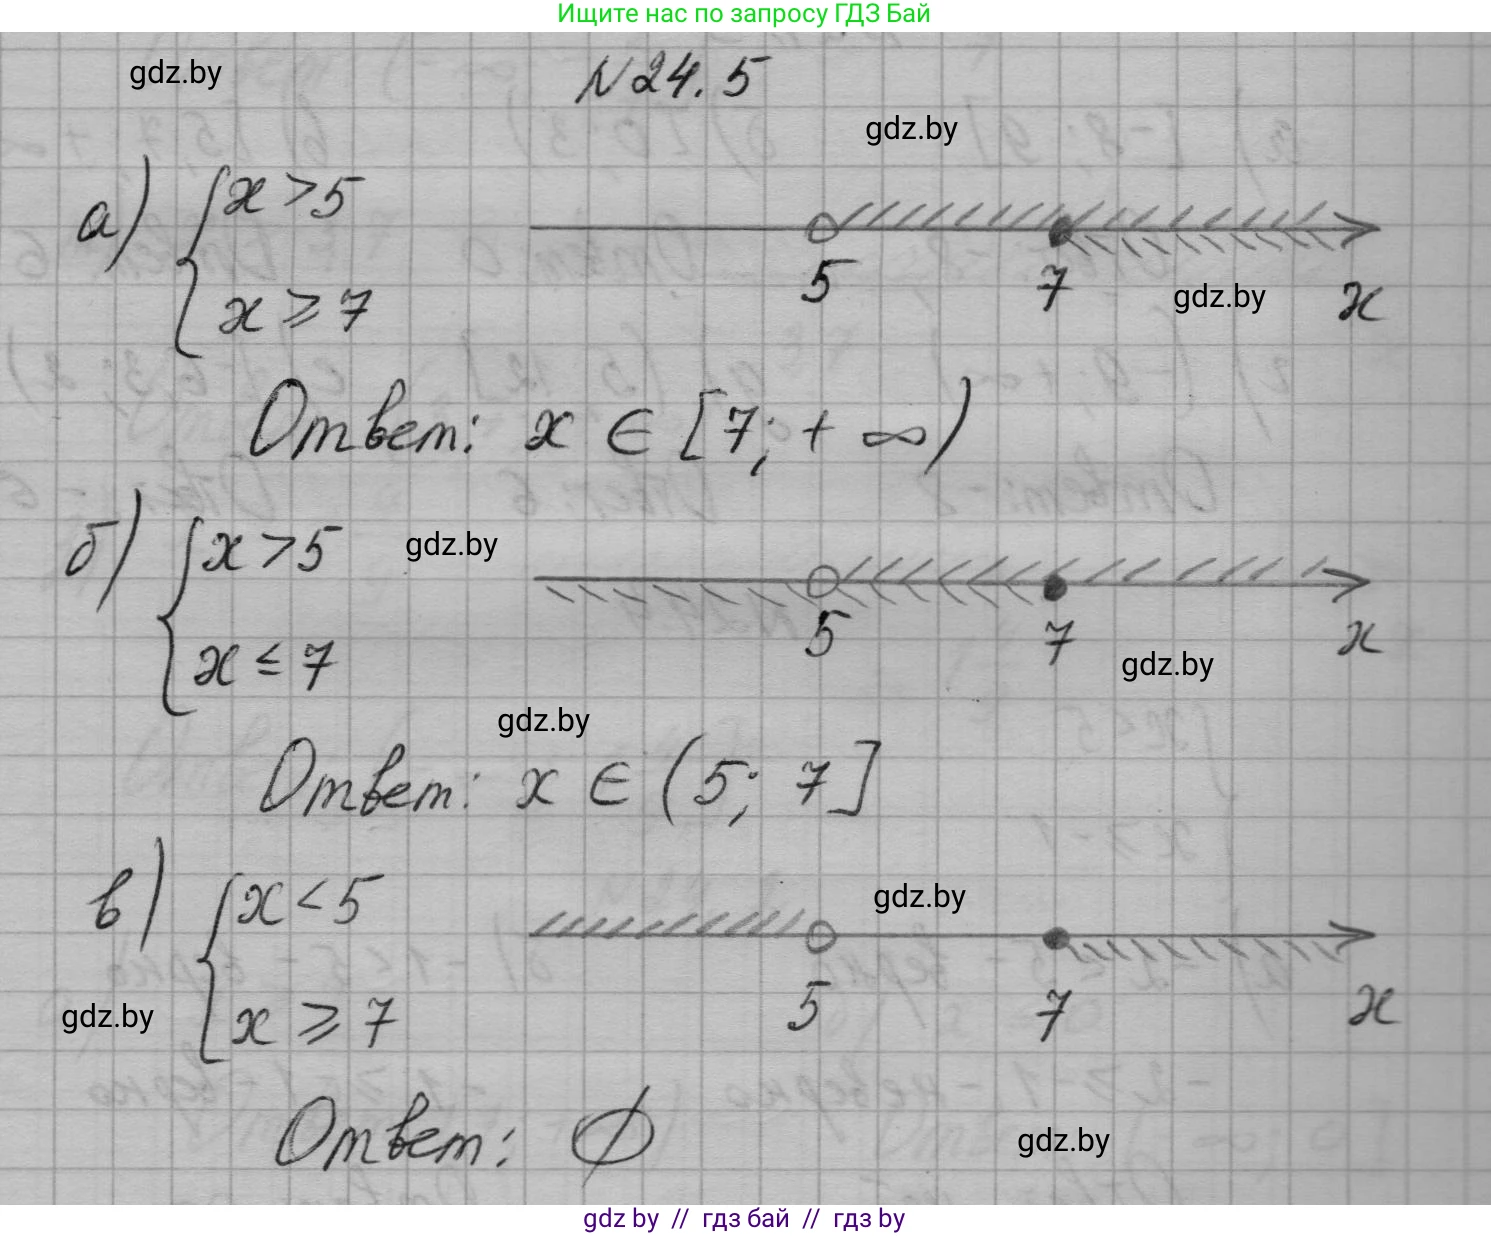 Ищите нас по запросу ГДЗ Бай
gdz.by
№24.5
gdz.by
а) { x > 5
x ⩾ 7
5 7 x
gdz.by
Ответ: x ∈ [7; + ∞)
б) { x > 5
x ≤ 7
gdz.by
5 7 x
gdz.by
gdz.by
Ответ: x ∈ (5; 7]
в) { x < 5
x ⩾ 7
gdz.by
5 7 x
gdz.by
Ответ: ∅
gdz.by
gdz by // гдз бай // гдз by